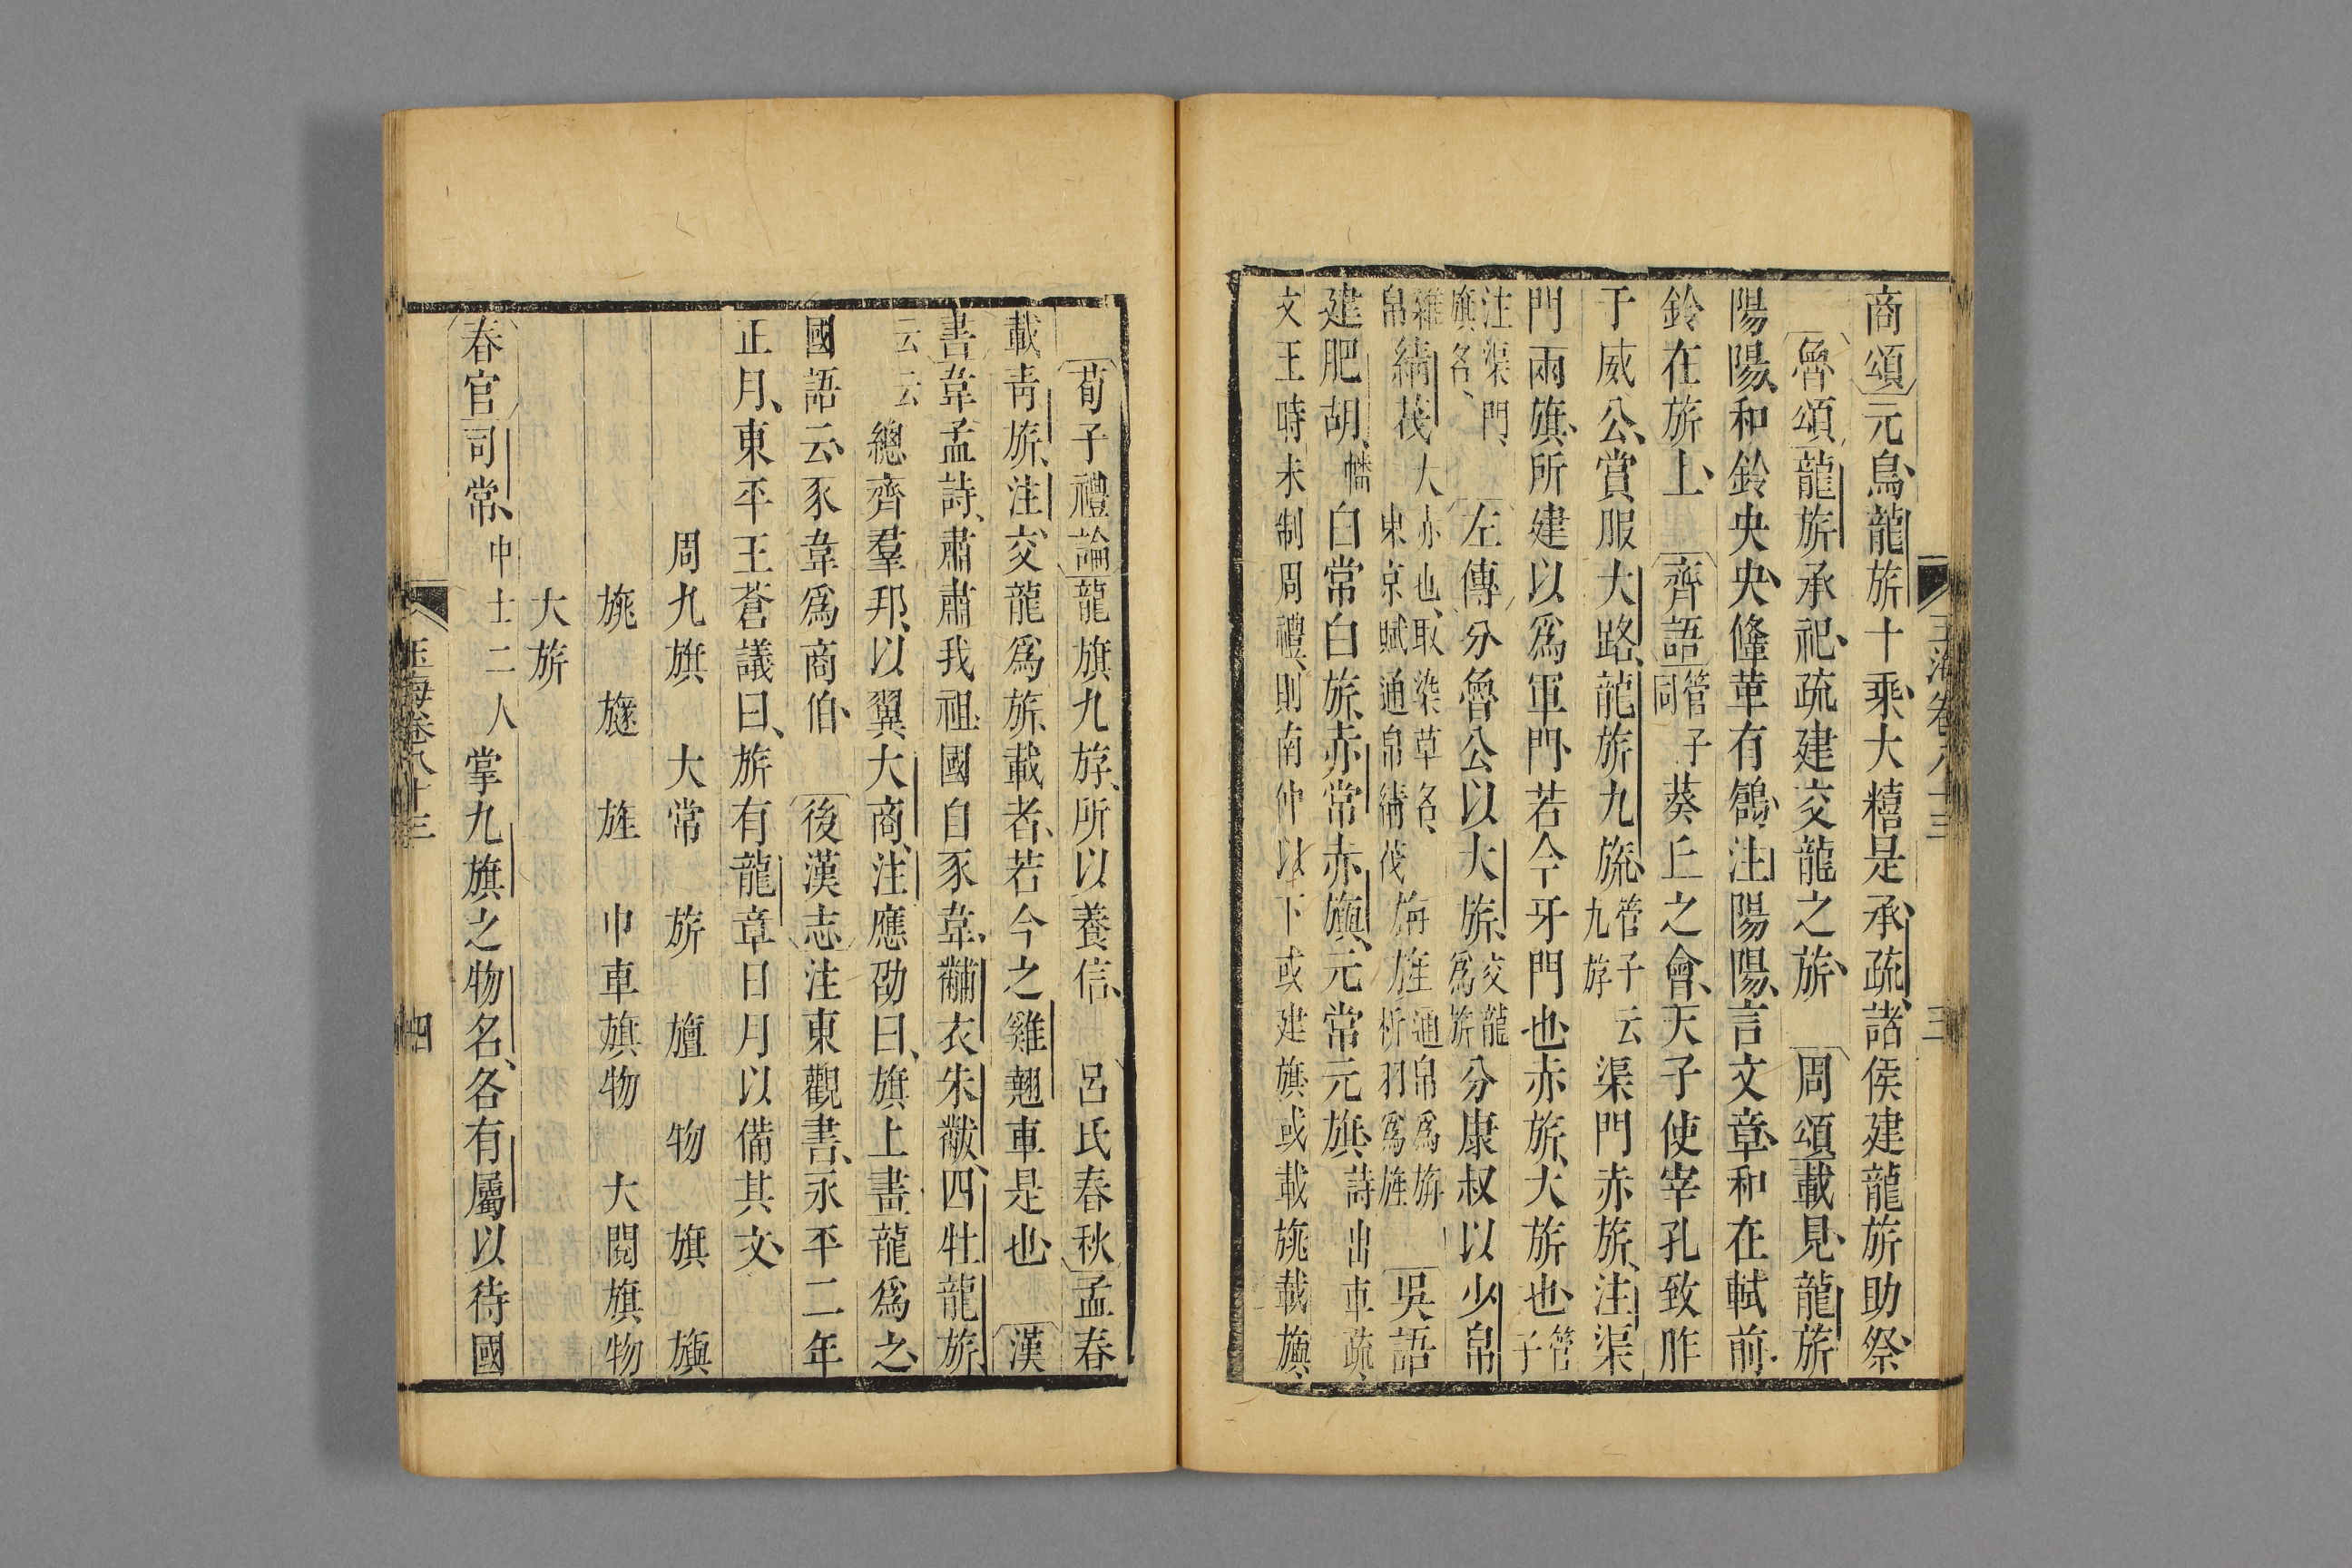 玉海卷八十三 三
商頌元鳥龍旂十乘大糦是承疏諸侯建龍旂助祭
魯頌龍旂承祀疏建交龍之旂 周頌載見龍旂
陽陽和鈴央央鞗革有鶬注陽陽言文章和在軾前
鈴在旂上 齊語管子同葵丘之會天子使宰孔致胙
于威公賞服大路龍旂九旒管子云九斿渠門赤旂注渠
門兩旗所建以爲軍門若今牙門也赤旂大旂也管子
注渠門旗名左傳分魯公以大旂交龍爲旂分康叔以少帛
雜帛綪茷大赤也取染草名東京賦通帛綪茷旃旌通帛爲旃析羽爲旌 吳語
建肥胡幡白常白旂赤常赤旟元常元旗詩出車疏
文王時未制周禮則南仲以下或建旗或載旐載旟
荀子禮論龍旗九斿所以養信 呂氏春秋孟春
載靑旂注交龍爲旂載者若今之雞翹車是也 漢
書韋孟詩肅肅我祖國自豕韋黼衣朱黻四牡龍旂
云云總齊羣邦以翼大商注應劭曰旗上畫龍爲之
國語云豕韋爲商伯 後漢志注東觀書永平二年
正月東平王蒼議曰旂有龍章日月以備其文
周九旗 大常 旂 旜 物 旗 旟
旐 旞 旌 巾車旗物 大閱旗物
大旂
春官司常中士二人掌九旗之物名各有屬以待國
玉海卷八十三 四